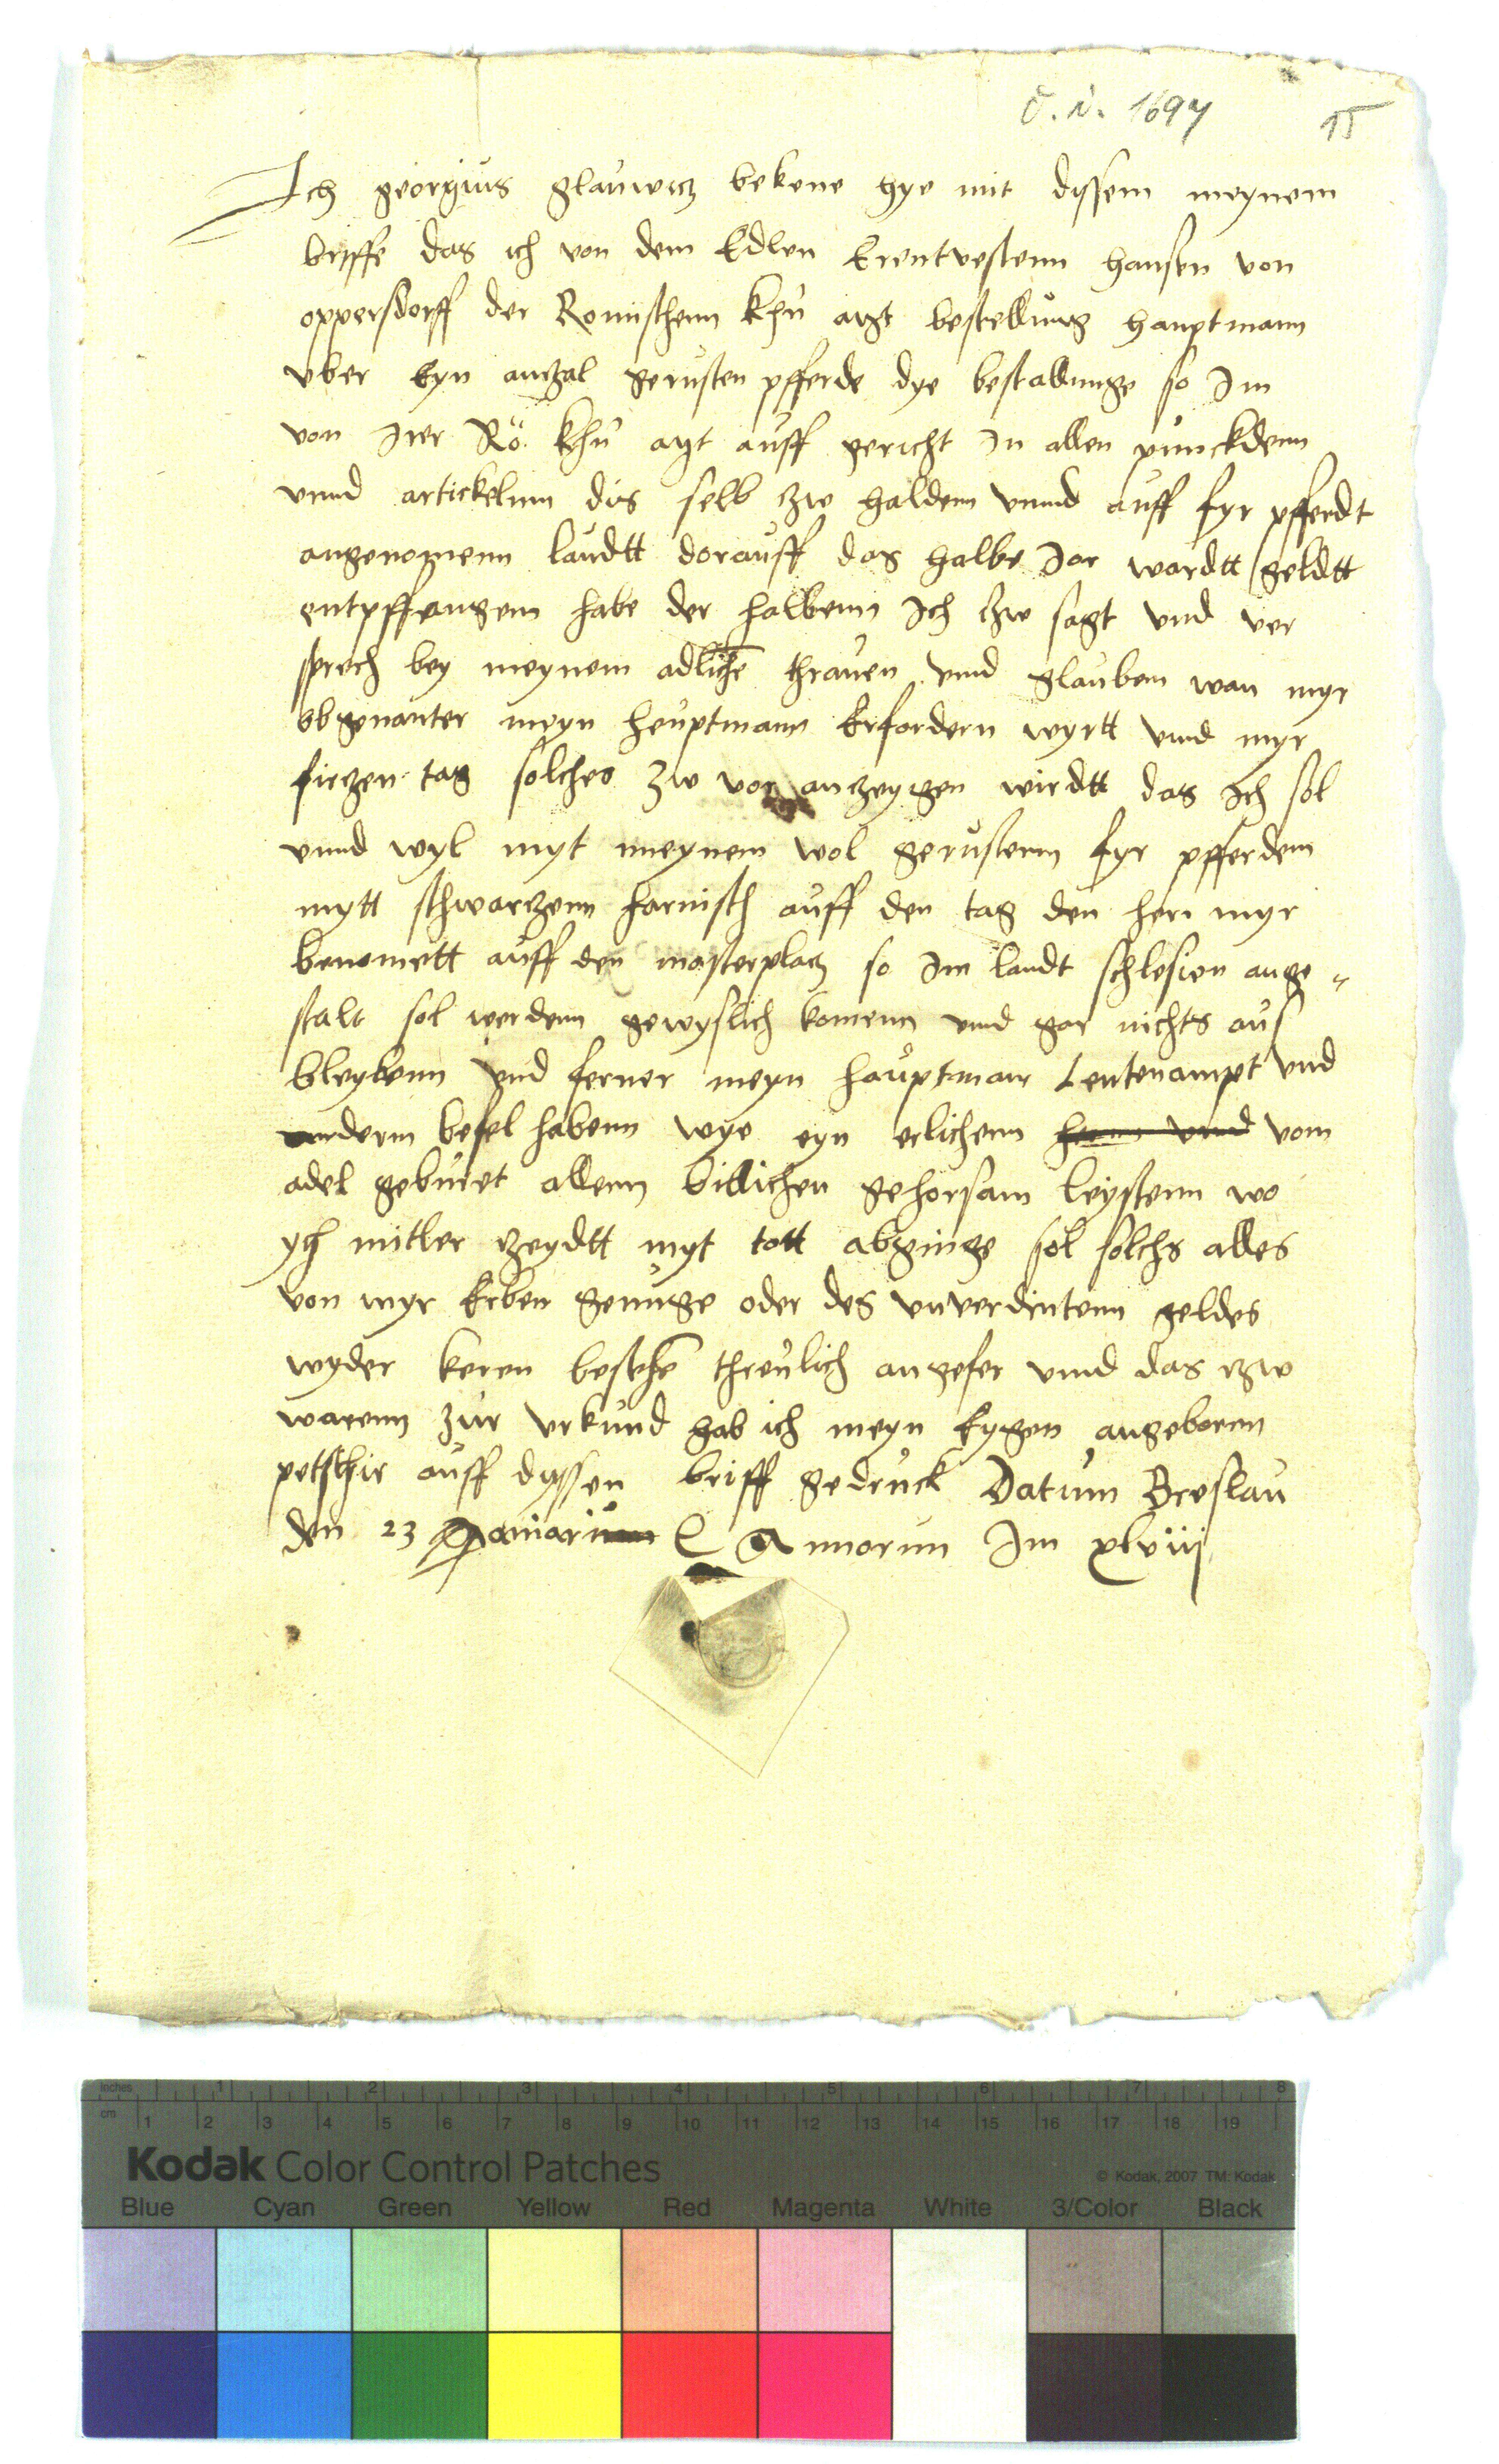 č. i. 1694
15
Ich georgius glauwicz bekene hye mit dissem meynem
briffe das ich von dem Edlen Erentvestenn hansen von
oppersdorff der Romischenn khu bestellung hauptmann
vber Eyn anczal gerusten pfferde dye bestallunge so Im
von Irer Rö. khu auff gericht In allen punckdenn
vnnd artickelnn dis selb zw haldenn vnnd auff fyr pfferdt
angenomenn laudtt dorauff das halbe Jor wardtt geldtt
entpffangenn habe der halbenn Ich zw sagt vnd ver
sprech bey meynem adliche thrauen vnnd glaubenn wan myr
obgenanter meyn heuptmann Erfordern wyrtt vnnd myr
firczen tag solches zw vor anczeygen wirdtt das Ich sol
vnnd wyl myt meynem wol gerustenn fyr pfferdenn
mytt schwarczenn harnisch auff den tag den her myr
benomett auff den mosterplacz so Im landt schlesien ange
stalt sol werdenn gewyslich komenn vnnd gar nichts aus
bleybenn vnd ferner meyn hauptman Leutenampt vnd
anderm befel habenn wye eyn erlichenn vom
adel geburet allenn billichen gehorsam leystenn wo
ych mitler czeydtt myt tott abginge sol solchs alles
von myr Erben genuge oder des vnverdintenn geldes
wyder keren bestehe threulich angefer vnnd das czw
warenn zur vrkund hab ich meyn Eygen angeboren
petschir auff dyssen briff gedruck Datum Breslau
den 23 Januarium Annorum Im xlviij
Kodak Color Control Patches
© Kodak, 2007 TM: Kodak
inches 1 2 3 4 5 6 7 8
cm 1 2 3 4 5 6 7 8 9 10 11 12 13 14 15 16 17 18 19
Blue Cyan Green Yellow Red Magenta White 3/Color Black